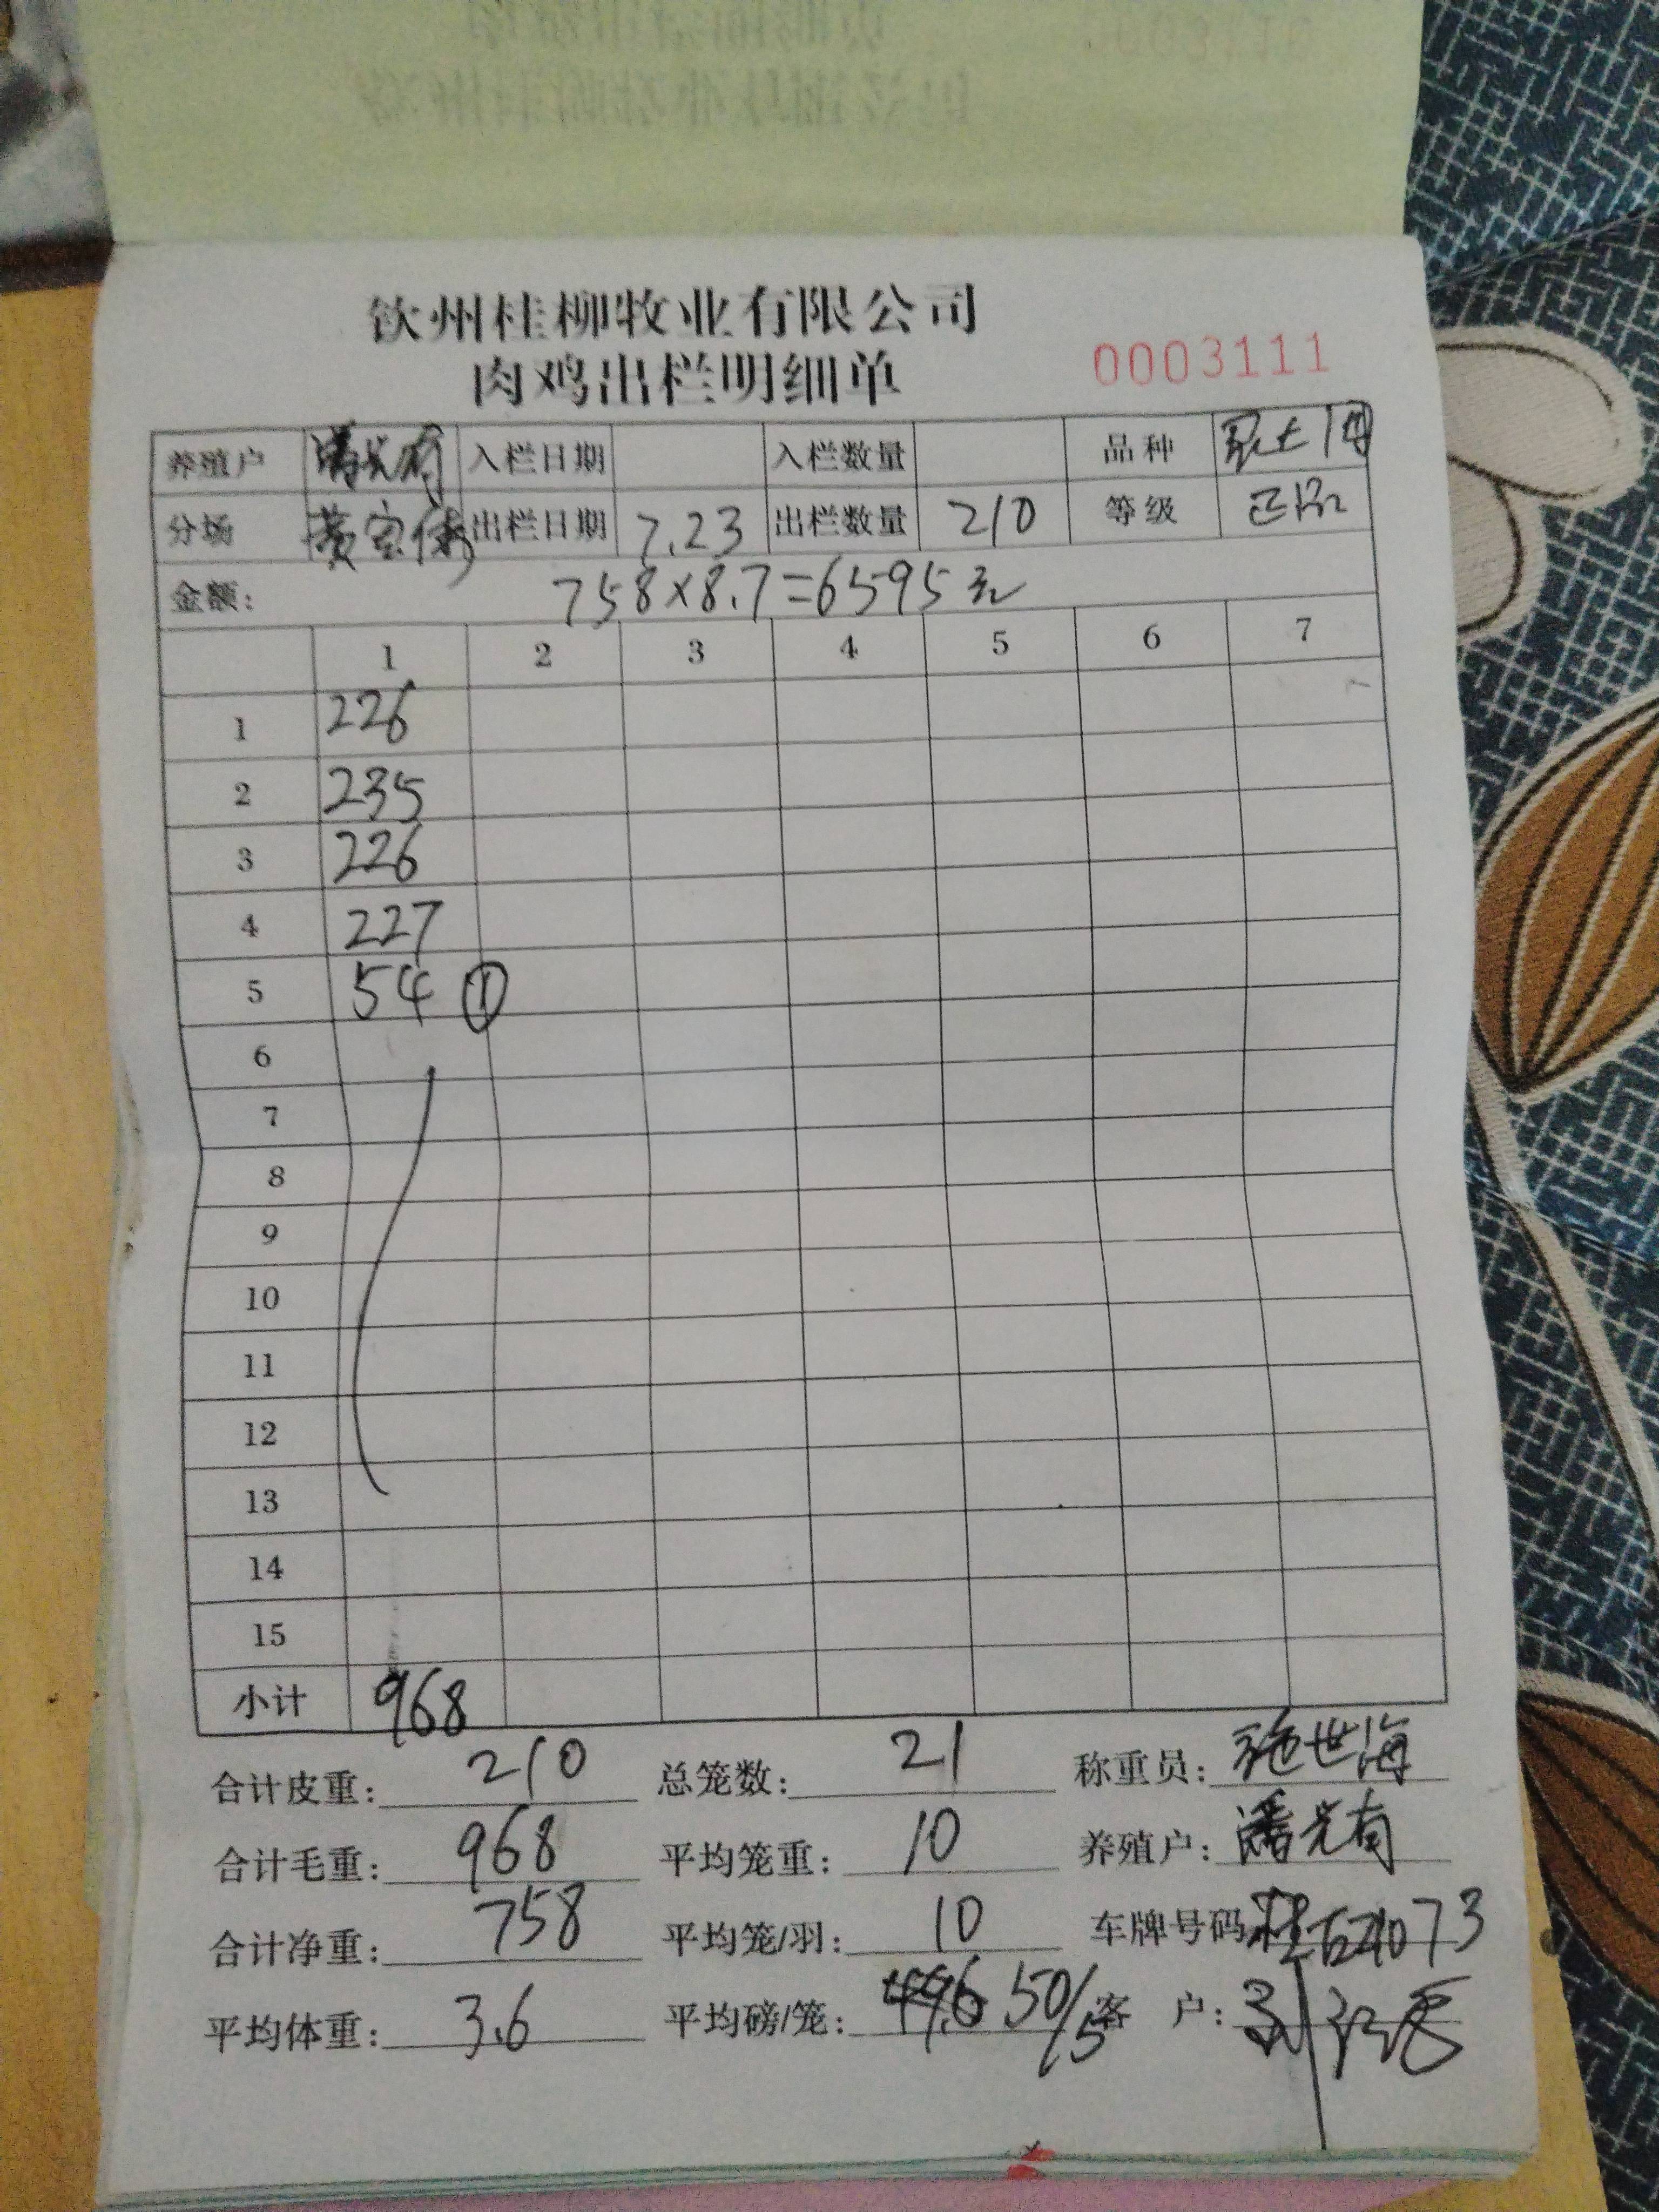 钦州桂柳牧业有限公司
肉鸡出栏明细单
0003111
养殖户 潘光有 入栏日期 入栏数量 品种
分场 出栏日期 7.23 出栏数量 210 等级 正品
金额: 758×8.7=6595元
1 2 3 4 5 6 7
1 226
2 235
3 226
4 227
5 54 ①
6
7
8
9
10
11
12
13
14
15
小计 968
合计皮重: 210 总笼数: 21 称重员: 施世海
合计毛重: 968 平均笼重: 10 养殖户: 潘光有
合计净重: 758 平均笼/羽: 10 车牌号码
平均体重: 3.6 平均磅/笼: 50/5 客户: